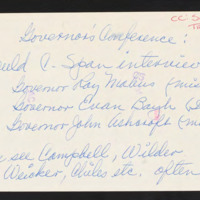 CC: S
Governor's Conference:
uld C-Span interview
Governor Ray Mabus (mis
Governor Evan Bayh (I
Governor John Ashcroft (m
see Campbell, Wilder
Weicker, Wiles etc. often